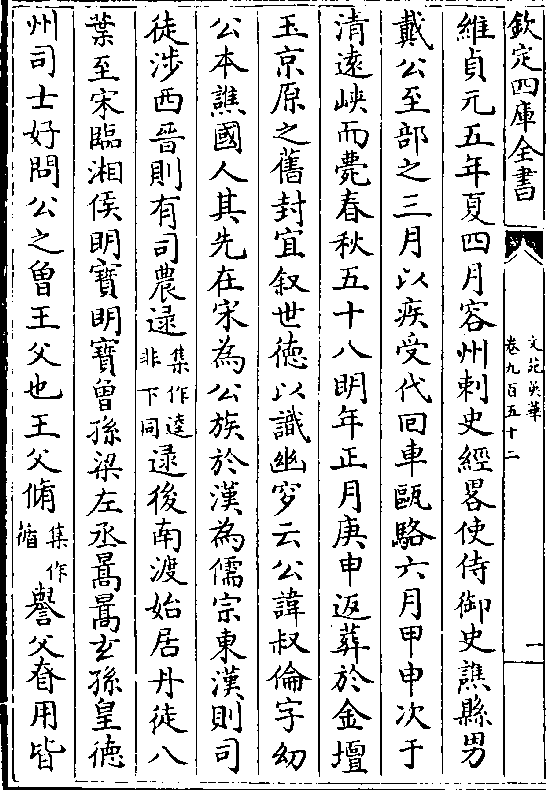 欽定四庫全書
文苑英華
卷九百五十二
一
維貞元五年夏四月容州刺史經畧使侍御史譙縣男
戴公至部之三月以疾受代回車甌駱六月甲申次于
清遠峽而薨春秋五十八明年正月庚申返葬於金壇
玉京原之舊封宜叙世徳以識幽穸云公諱叔倫字幼
公本譙國人其先在宋為公族於漢為儒宗東漢則司
徒涉西晉則有司農逯集作逵非下同逯後南渡始居丹徒八
葉至宋臨湘侯明寳明寳曾孫梁左丞暠暠玄孫皇徳
州司士好問公之曽王父也王父脩集作㣃譽父昚用皆